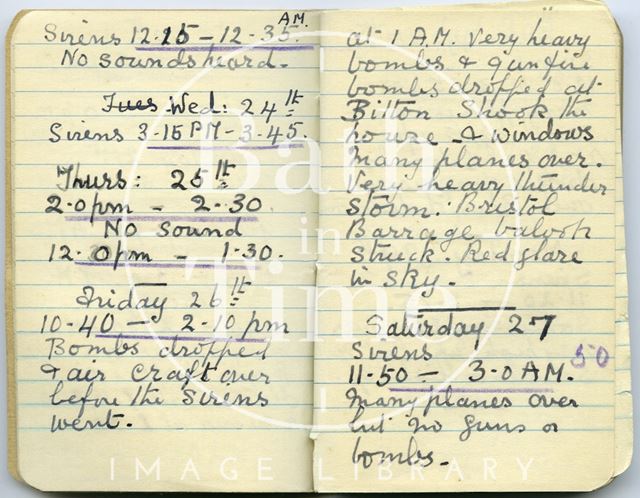 Sirens 12.15 – 12-35. A.M.
No sounds heard.
Tues: Wed: 24th
Sirens 3-15 PM - 3-45.
Thurs: 25th
2.0pm - 2-30
No Sound
12.0pm - 1-30.
Friday 26th
10-40 - 2-10 pm
Bombs dropped
& air craft over
before the Sirens
went.
at 1 A.M. Very heavy
bombs & gunfire
bombs dropped at
Bitton Shook the
house & windows
Many planes over.
Very heavy thunder
storm. Bristol
Barrage baloon
Struck. Red glare
in sky.
Saturday 27
Sirens
50
11-50 - 3-0 AM.
Many planes over
but no guns or
bombs.
Bath
in
Time
IMAGE LIBRARY